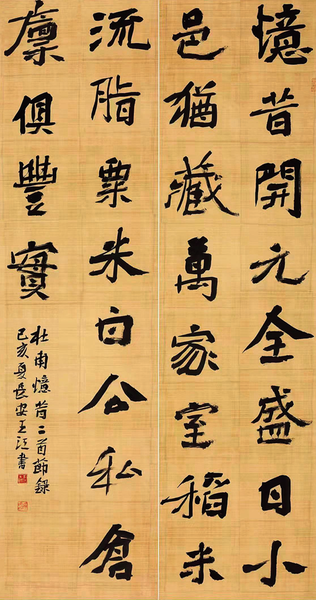 憶昔開元全盛日小
邑猶藏萬家室稻米
流脂粟米白公私倉
廩俱豐實
杜甫憶昔二首節錄
己亥夏長安王書